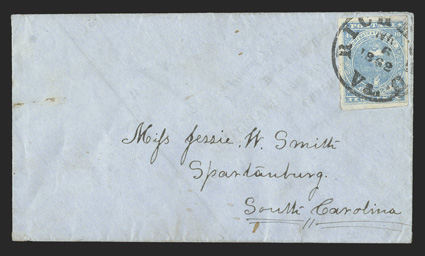 RICHM
VA.
1862
Miss Jessie. W. Smith
Spartanburg.
South Carolina